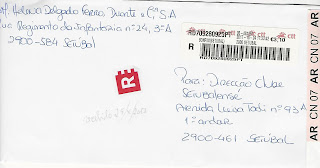 Helena Delgado Ferro, Duarte & Cª SA
Rua Regimento da Infantaria nº 24, 3ºA
2900-584 SETÚBAL
R
R
Para: Direcção Clube
Setubalense
Avenida Luísa Todi nº 93 A
1º andar
2900-461 SETÚBAL
AR CN 07 AR CN 07 AR